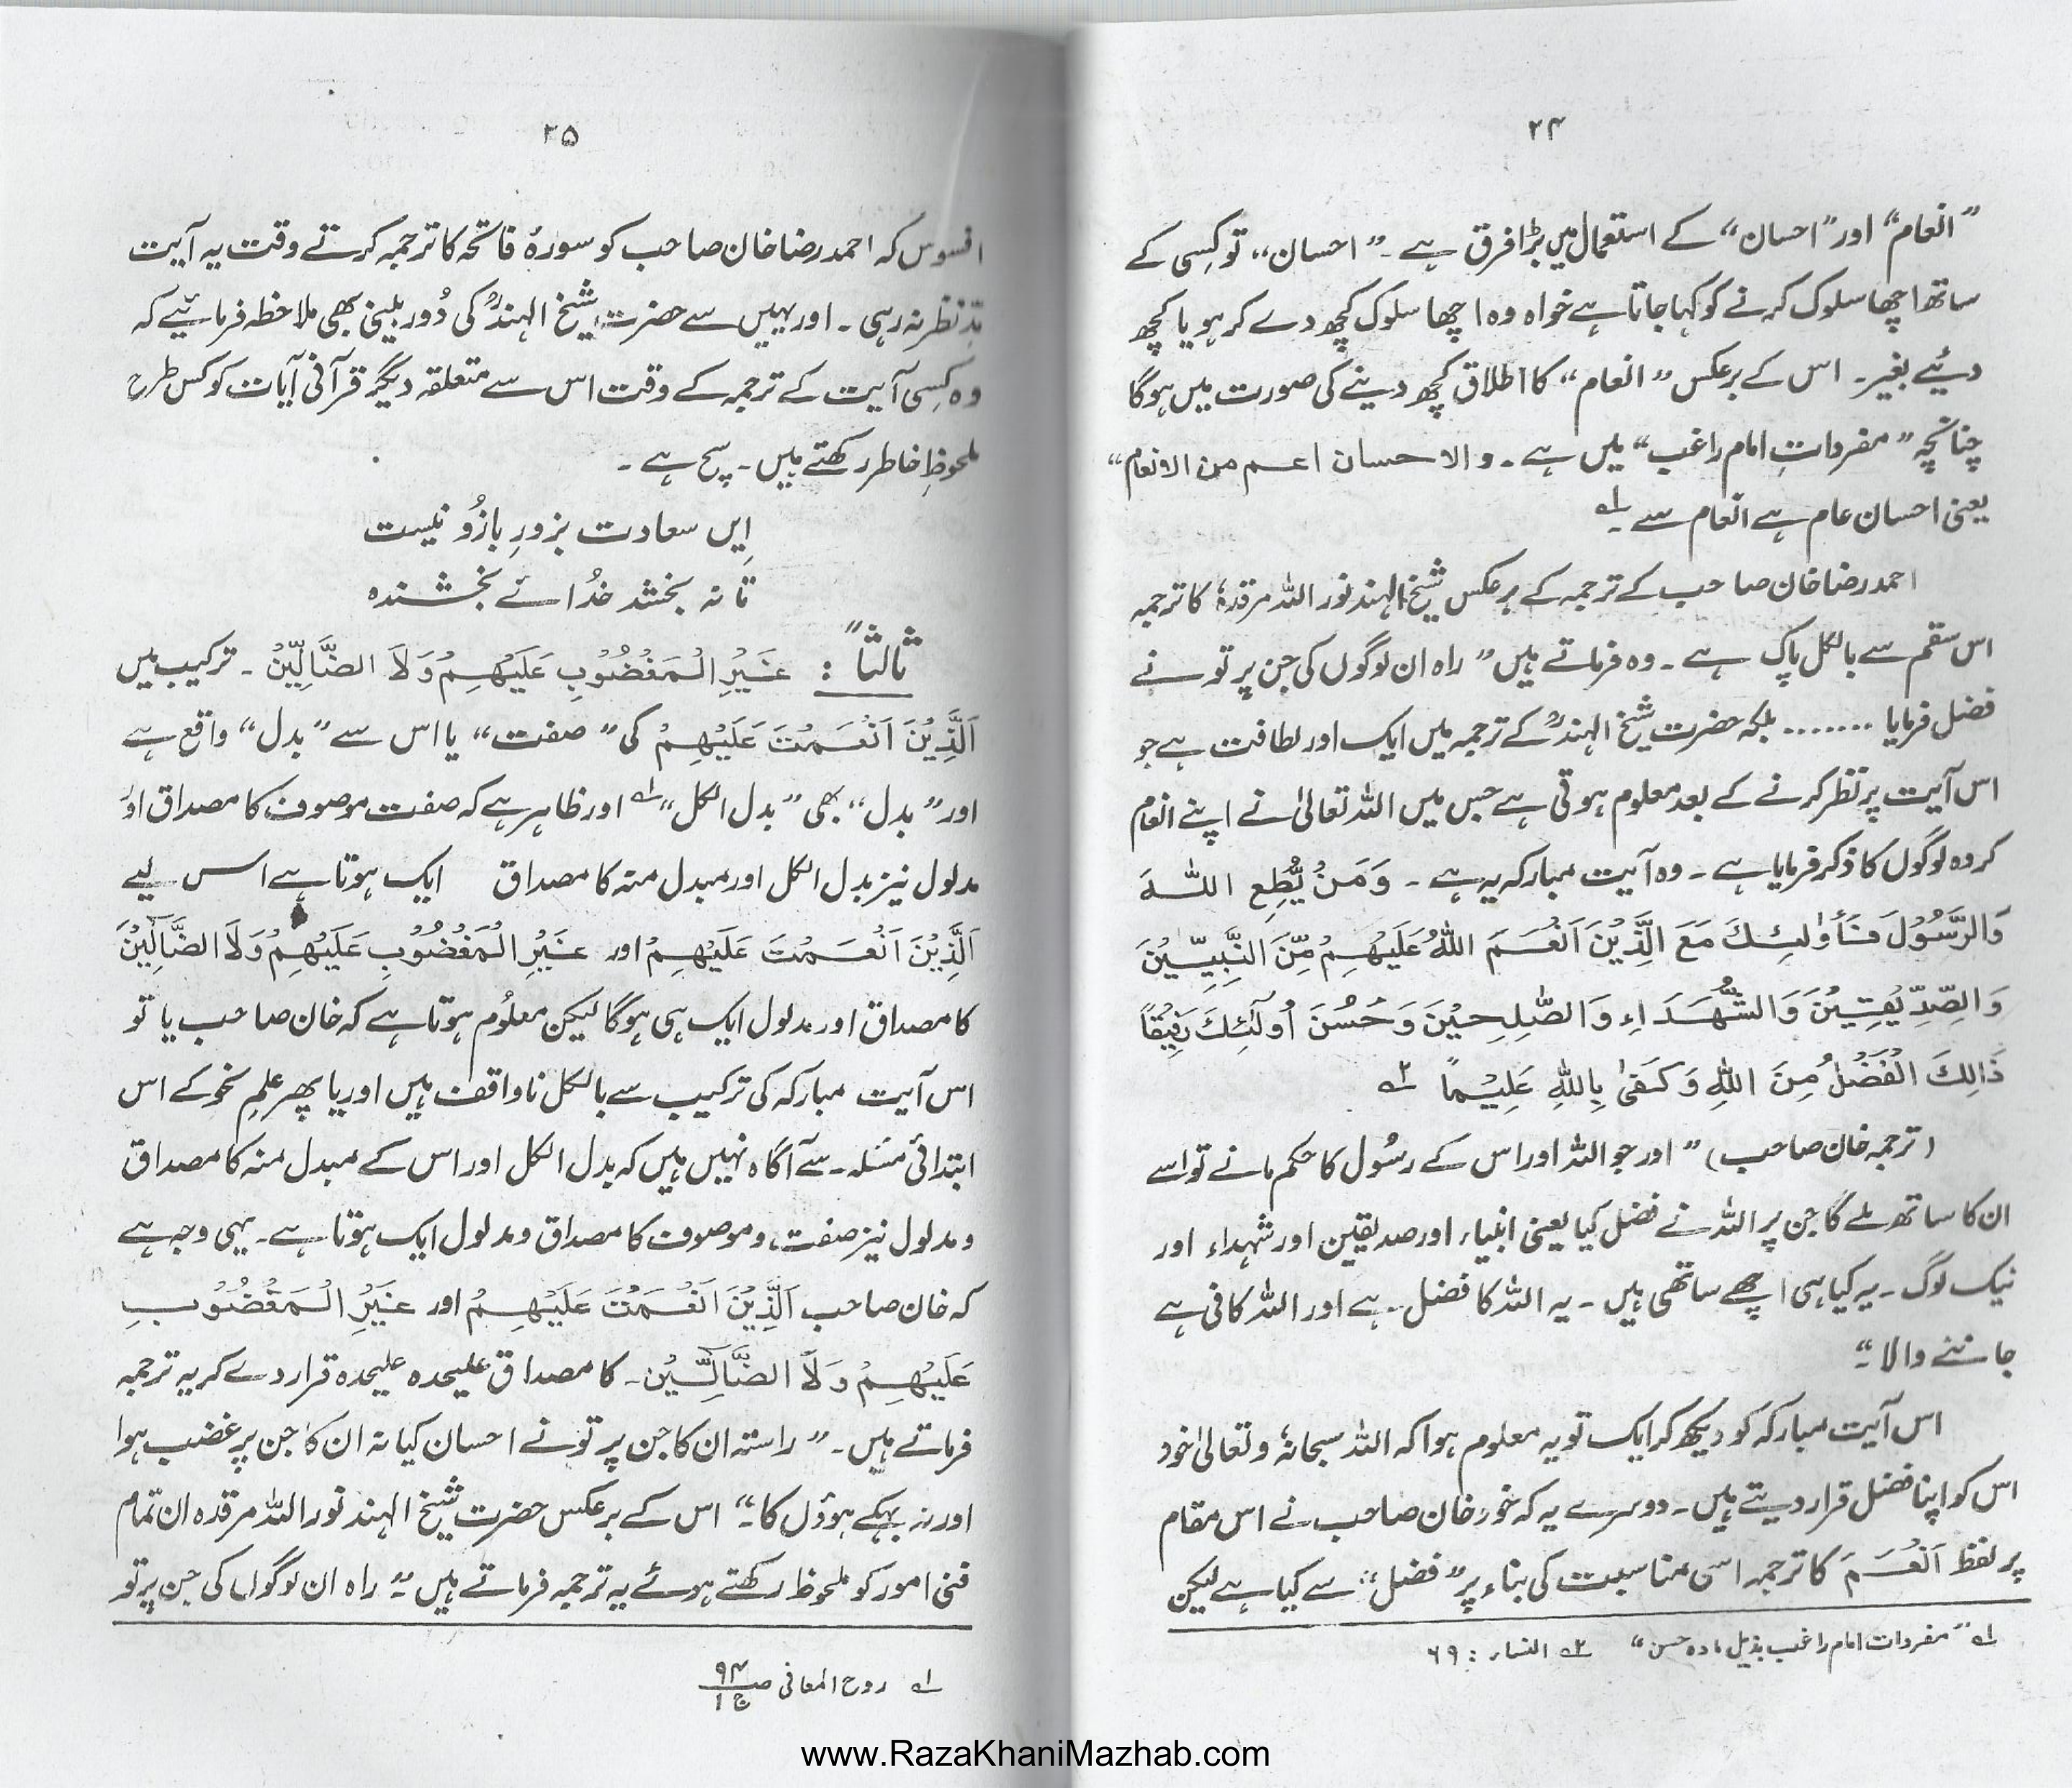 ۲۴
”انعام“ اور ”احسان“ کے استعمال میں بڑا فرق ہے۔ ”احسان“ تو کسی کے
ساتھ اچھا سلوک کرنے کو کہا جاتا ہے خواہ وہ اچھا سلوک کچھ دے کر ہو یا کچھ
دیئے بغیر۔ اس کے برعکس ”انعام“ کا اطلاق کچھ دینے کی صورت میں ہوگا
چنانچہ ”مفرداتِ امام راغب“ میں ہے۔ والاحسان اعم من الانعام“
یعنی احسان عام ہے انعام سے۔ ؎۱
احمد رضا خان صاحب کے ترجمہ کے برعکس شیخ الہند نور اللہ مرقدہٗ کا ترجمہ
اس سقم سے بالکل پاک ہے۔ وہ فرماتے ہیں ”راہ ان لوگوں کی جن پر تو نے
فضل فرمایا ....... بلکہ حضرت شیخ الہندؒ کے ترجمہ میں ایک اور لطافت ہے جو
اس آیت پر نظر کرنے کے بعد معلوم ہوتی ہے جس میں اللہ تعالیٰ نے اپنے انعام
کردہ لوگوں کا ذکر فرمایا ہے۔ وہ آیت مبارکہ یہ ہے۔ وَمَنْ یُّطِعِ اللہَ
وَالرَّسُوْلَ فَأُولٰئِكَ مَعَ الَّذِیْنَ اَنْعَمَ اللہُ عَلَیْهِمْ مِّنَ النَّبِیِّیْنَ
وَالصِّدِّیْقِیْنَ وَالشُّهَدَاءِ وَالصّٰلِحِیْنَ وَحَسُنَ اُولٰٓئِكَ رَفِیْقًا
ذَالِكَ الْفَضْلُ مِنَ اللہِ وَکَفیٰ بِاللہِ عَلِیْمًا ؎۲
(ترجمہ خان صاحب) ”اور جو اللہ اور اس کے رسُول کا حکم مانے تو اسے
ان کا ساتھ ملے گا جن پر اللہ نے فضل کیا یعنی انبیاء اور صدیقین اور شہداء اور
نیک لوگ۔ یہ کیا ہی اچھے ساتھی ہیں۔ یہ اللہ کا فضل ہے اور اللہ کافی ہے
جاننے والا۔“
اس آیت مبارکہ کو دیکھ کر ایک تو یہ معلوم ہوا کہ اللہ سبحانہٗ و تعالیٰ خود
اس کو اپنا فضل قرار دیتے ہیں۔ دوسرے یہ کہ خود خان صاحب نے اس مقام
پر لفظ اَنْعَمَ کا ترجمہ اسی مناسبت کی بناء پر ”فضل“ سے کیا ہے لیکن
؎۱ ”مفردات امام راغب بذیل مادہ حسن“ ؎۲ النساء : ۶۹
۲۵
افسوس کہ احمد رضا خان صاحب کو سورۂ فاتحہ کا ترجمہ کرتے وقت یہ آیت
مدِّنظر نہ رہی۔ اور یہیں سے حضرت شیخ الہندؒ کی دُور بینی بھی ملاحظہ فرمائیے کہ
وہ کسی آیت کے ترجمہ کے وقت اس سے متعلقہ دیگر قرآنی آیات کو کس طرح
ملحوظِ خاطر رکھتے ہیں۔ سچ ہے۔
اِیں سعادت بزورِ بازُو نیست
تا نہ بخشد خدُائے بخشندہ
ثالثاً : غَیْرِ الْمَغْضُوْبِ عَلَیْهِمْ وَلَا الضَّالِّیْنَ۔ ترکیب میں
اَلَّذِیْنَ اَنْعَمْتَ عَلَیْهِمْ کی ”صفت“ یا اس سے ”بدل“ واقع ہے
اور ”بدل“ بھی ”بدل الکل“ ؎۱ اور ظاہر ہے کہ صفت موصوف کا مصداق اور
مدلول نیز بدل الکل اور مبدل منہ کا مصداق ایک ہوتا ہے اس لیے
اَلَّذِیْنَ اَنْعَمْتَ عَلَیْهِمْ اور غَیْرِ الْمَغْضُوْبِ عَلَیْهِمْ وَلَا الضَّآلِّیْنَ
کا مصداق اور مدلول ایک ہی ہوگا لیکن معلوُم ہوتا ہے کہ خان صاحب یا تو
اس آیت مبارکہ کی ترکیب سے بالکل ناواقف ہیں اور یا پھر علمِ نحو کے اس
ابتدائی مسئلہ سے آگاہ نہیں ہیں کہ بدل الکل اور اس کے مبدل منہ کا مصداق
و مدلول نیز صفت و موصوف کا مصداق و مدلول ایک ہوتا ہے۔ یہی وجہ ہے
کہ خان صاحب اَلَّذِیْنَ اَنْعَمْتَ عَلَیْهِمْ اور غَیْرِ الْمَغْضُوْبِ
عَلَیْهِمْ وَلَا الضَّآلِّیْنَ۔ کا مصداق علیحدہ علیحدہ قرار دے کر یہ ترجمہ
فرماتے ہیں۔ ”راستہ ان کا جن پر تو نے احسان کیا نہ ان کا جن پر غضب ہوا
اور نہ بہکے ہوؤں کا۔“ اس کے برعکس حضرت شیخ الہند نور اللہ مرقدہ ان تمام
فنی امور کو ملحوظ رکھتے ہوئے یہ ترجمہ فرماتے ہیں۔ ”راہ ان لوگوں کی جن پر تو
؎۱ روح المعانی ص ۹۴ ج ۱
www.RazaKhaniMazhab.com